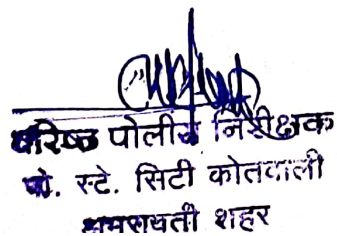 वरिष्ठ पोलीस निरीक्षक
पो. स्टे. सिटी कोतवाली
अमरावती शहर